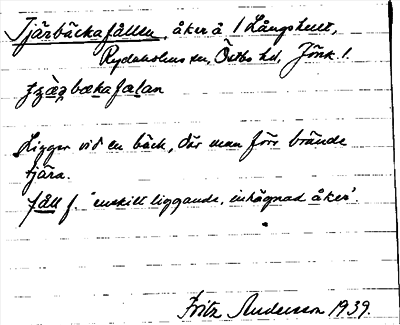 Tjärbäckafållen, åker å 1 Långshult,
Rydaholms sn, Östbo hd, Jönk. l.
Ligger vid en bäck, där man förr brände
tjära.
fåll f. 'enskilt liggande, inhägnad åker'.
Fritz Andersson 1939.